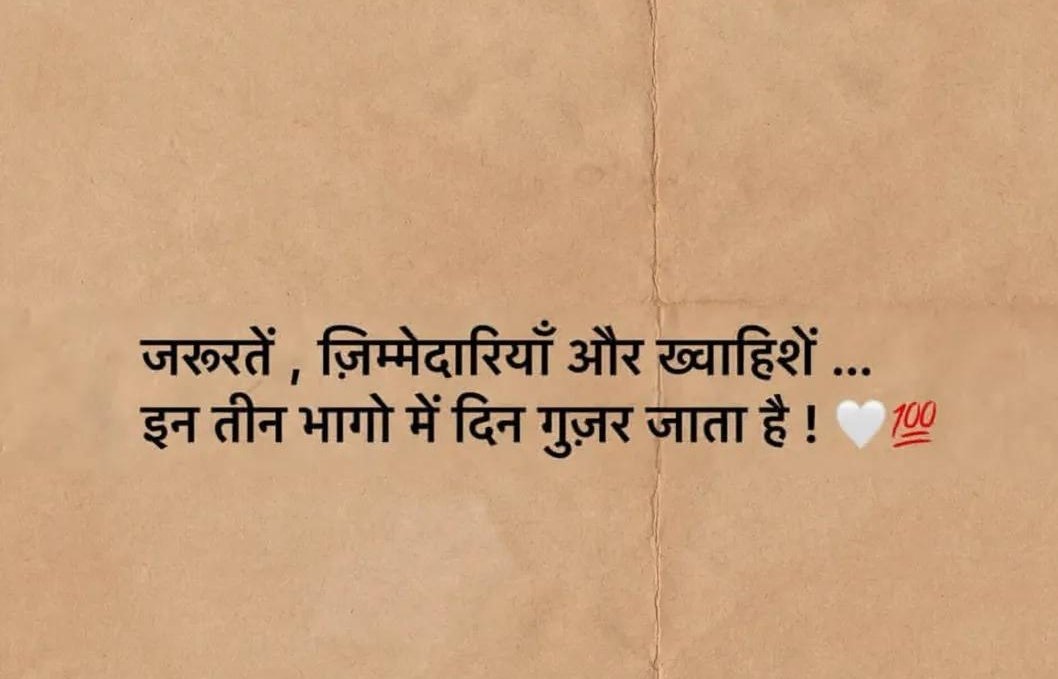 जरूरतें , ज़िम्मेदारियाँ और ख्वाहिशें ...
इन तीन भागो में दिन गुज़र जाता है ! 🤍💯